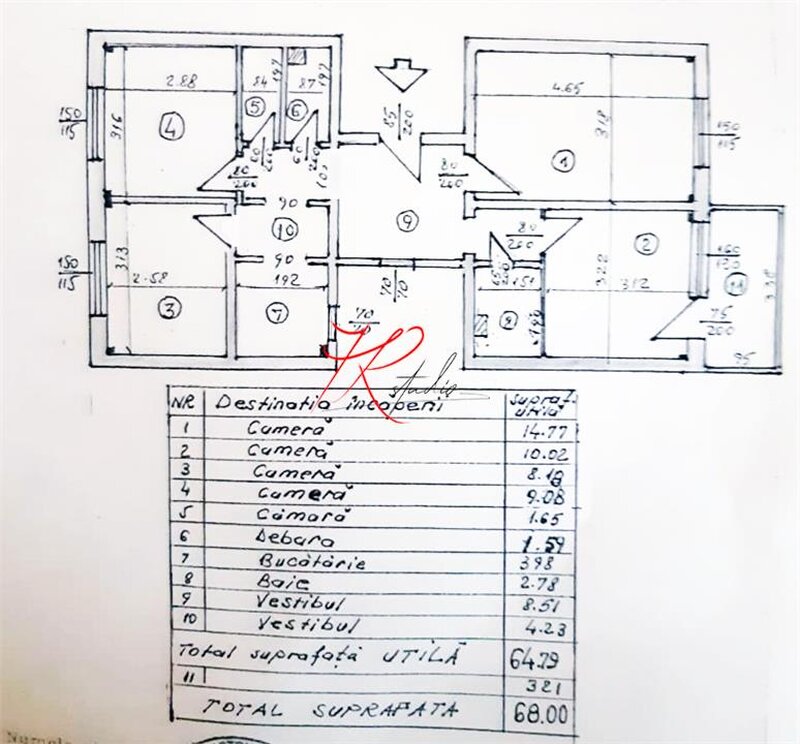 2.88
84
197
87
197
85
200
4.65
150
115
4
316
5
6
80
200
60
200
60
200
105
80
200
1
318
150
115
90
10
9
80
200
2
160
150
115
313
2.58
90
192
70
70
65
200
151
322
312
11
3.38
3
7
70
70
8
75
200
95
HR studio
NR Destinatia încăperii supraf. utilă
1 Cameră 14.77
2 Cameră 10.02
3 Cameră 8.18
4 Cameră 9.08
5 Cămară 1.65
6 Debara 1.59
7 Bucătărie 3.98
8 Baie 2.78
9 Vestibul 8.51
10 Vestibul 4.23
Total suprafață UTILĂ 64.79
11 3.21
TOTAL SUPRAFATA 68.00